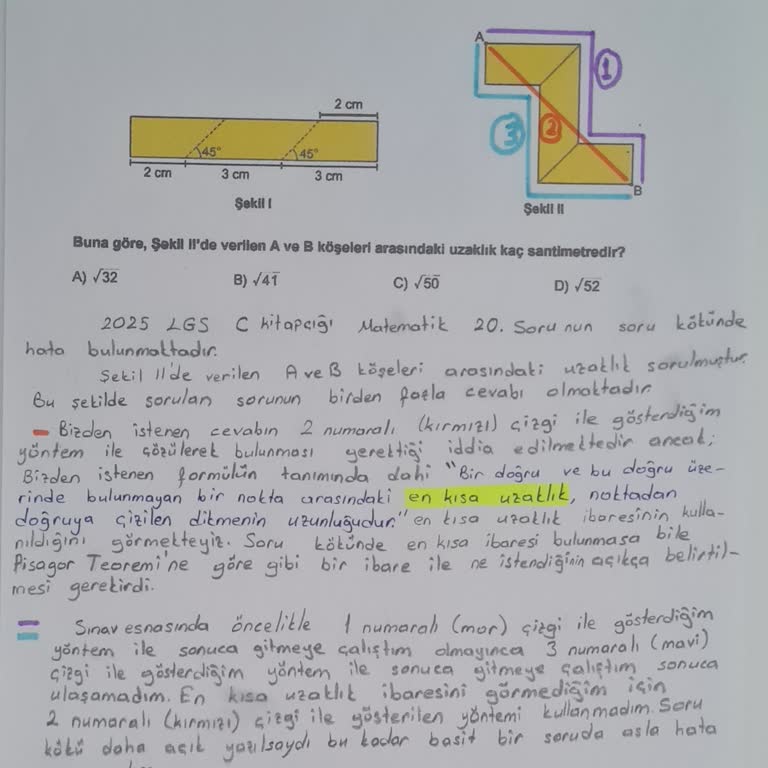 A
1
2 cm
2
3
45°
45°
2 cm
3 cm
3 cm
B
Şekil I
Şekil II
Buna göre, Şekil II'de verilen A ve B köşeleri arasındaki uzaklık kaç santimetredir?
A) √32
B) √41
C) √50
D) √52
2025 LGS C kitapçığı Matematik 20. Soru nun soru kökünde
hata bulunmaktadır.
Şekil II'de verilen A ve B köşeleri arasındaki uzaklık sorulmuştur.
Bu şekilde sorulan sorunun birden fazla cevabı olmaktadır.
Bizden istenen cevabın 2 numaralı (kırmızı) çizgi ile gösterdiğim
yöntem ile çözülerek bulunması gerektiği iddia edilmektedir ancak;
Bizden istenen formülün tanımında dahi "Bir doğru ve bu doğru üze-
rinde bulunmayan bir nokta arasındaki en kısa uzaklık, noktadan
doğruya çizilen dikmenin uzunluğudur." en kısa uzaklık ibaresinin kulla-
nıldığını görmekteyiz. Soru kökünde en kısa ibaresi bulunmasa bile
Pisagor Teoremi'ne göre gibi bir ibare ile ne istendiğinin açıkça belirtil-
mesi gerekirdi.
Sınav esnasında öncelikle 1 numaralı (mor) çizgi ile gösterdiğim
yöntem ile sonuca gitmeye çalıştım olmayınca 3 numaralı (mavi)
çizgi ile gösterdiğim yöntem ile sonuca gitmeye çalıştım sonuca
ulaşamadım. En kısa uzaklık ibaresini görmediğim için
2 numaralı (kırmızı) çizgi ile gösterilen yöntemi kullanmadım. Soru
kökü daha açık yazılsaydı bu kadar basit bir soruda asla hata